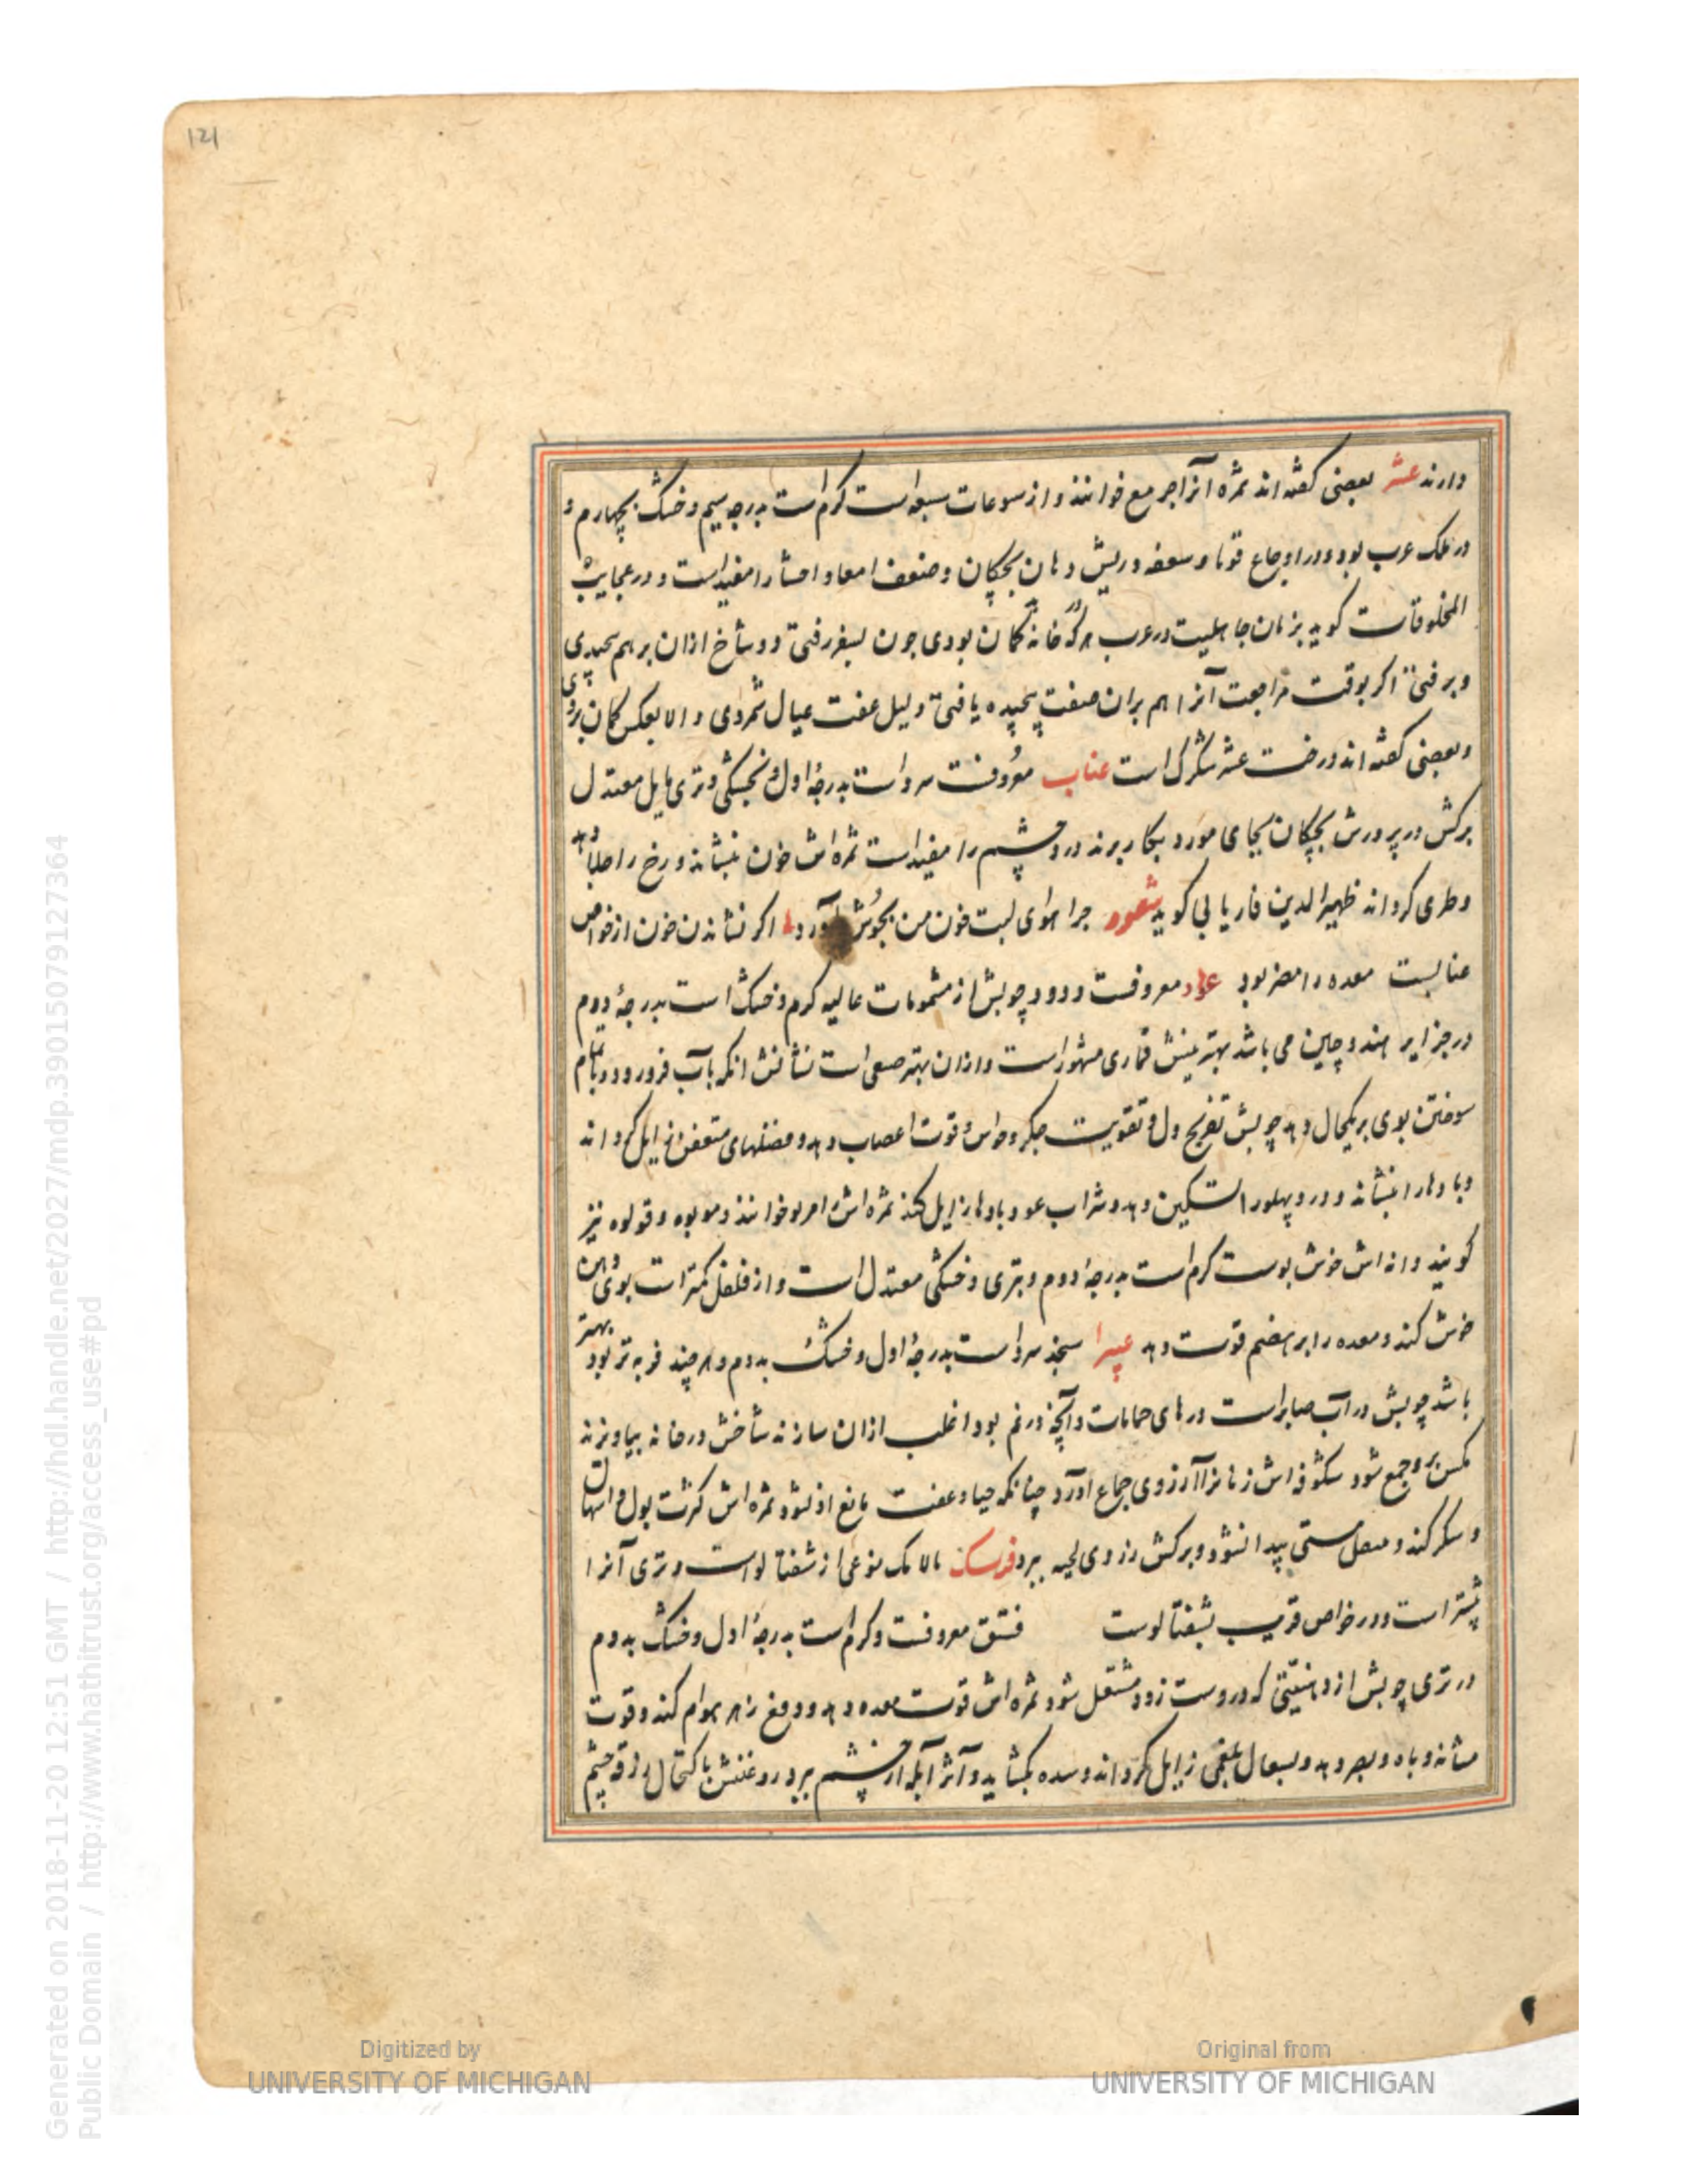 121
دارند عشر بعضی کفته اند ثمره آنرا خوانند و از سبعه است کرم است بدرجه سیم و خشک بچهارم و
در ملک عرب بود و در اوجاع قوبا و سعفه و ریش دهان بچکان و ضعف امعا و احشا را مفید است و در عجایب
المخلوقات کوید بزمان جاهلیت در عرب هر که خانه کمان بودی چون بسفر رفتی دو شاخ ازان بر هم پیچیدی
و برفتی اکر بوقت مراجعت آنرا هم بران صفت پیچیده یافتی دلیل عفت عیال شمردی و الا بعکس کمان بردی
و بعضی کفته اند درخت عشر است عناب معروفست سرد است بدرجۀ اول و بخشکی و تری مایل معتدل
برکش در پرورش بچکان بجای مورد بکار برند درد چشم را مفید است ثمره اش خون بنشاند و رخ را دهد
و طری کرداند ظهیر الدین فاریابی کوید شعر چرا هوای لبت خون من بجوش آورد اکر نشاندن خون از خواص
عنابست معده را مضر بود عود معروفست و دود چوبش از مشمومات عالیه کرم و خشک است بدرجۀ دوم
در جزایر هند و چین می باشد بهترینش قماری مشهور است و ازان بهتر است نشانش انکه بآب فرو رود و تمام
سوختن بوی بر یکحال دهد چوبش تفریح دل و تقویت جکر و حواس و قوت اعصاب دهد و فضلهای متعفن زایل کرداند
و بادها را بنشاند و درد پهلو را تسکین دهد و شراب عود بادها زایل کند ثمره اش را خوانند و قولوه نیز
کویند دانه اش خوش بوست کرم است بدرجۀ دوم و بتری و خشکی معتدل است و از فلفل کمتر است بوی دهن
خوش کند و معده را بر هضم قوت دهد سنجد سرد است بدرجۀ اول و خشک بدوم و هر چند فربه تر بود بهتر
باشد چوبش در آب صابر است درهای حمامات و آنچه در نم بود اغلب ازان سازند شاخش در خانه بیاویزند
مکس برو جمع شود شکوفه اش زنانرا آرزوی جماع آورد چنانکه حیا و عفت مانع او نشود ثمره اش کثرت بول و اسهال
و سکر کند و مستی پیدا نشود و برکش بوی لحیه ببرد فرسک نوعی از شفتالو است و تری آنرا
بیشتر است و در خواص قریب بشفتالوست فستق معروفست و کرم است بدرجۀ اول و خشک بدوم
در تری چوبش از دهنیتی که دروست زود مشتعل شود ثمره اش قوت معده دهد و دفع زهر هوام کند و قوت
مثانه و باه و بصر دهد و سعال بلغمی زایل کرداند و سده بکشاید و آثر آبله از چشم ببرد روغنش باکتحال زرقه چشم
Digitized by
UNIVERSITY OF MICHIGAN
Original from
UNIVERSITY OF MICHIGAN
Generated on 2018-11-20 12:51 GMT / http://hdl.handle.net/2027/mdp.39015079127364
Public Domain / http://www.hathitrust.org/access_use#pd